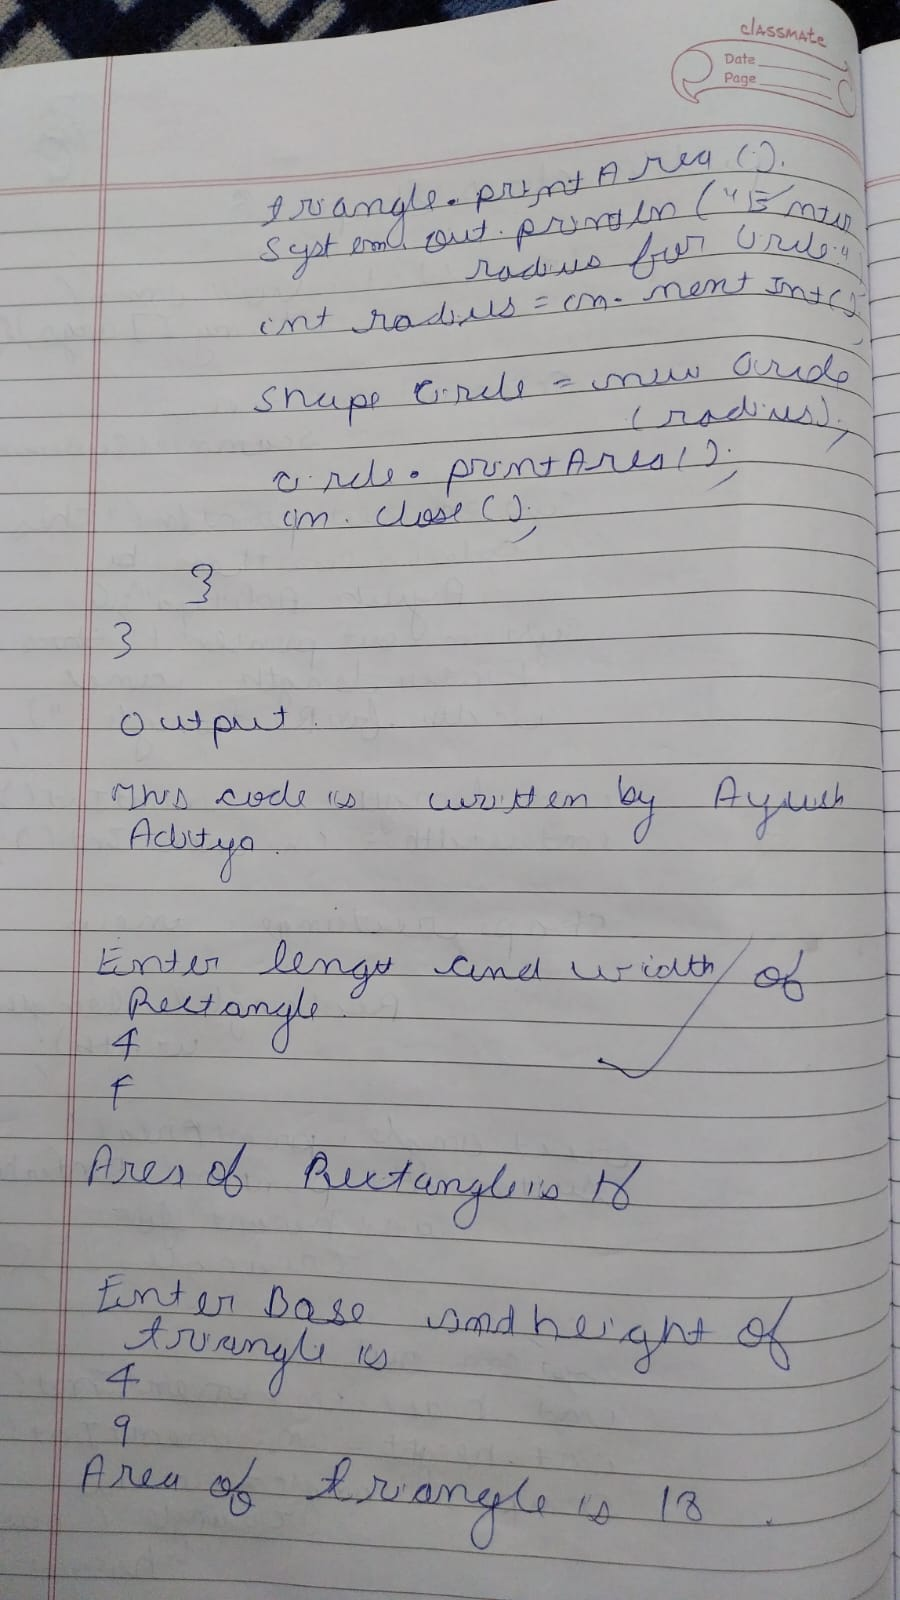 classmate
Date
Page
triangle.printArea();
System.out.println("Enter
radius for Circle."
int radius = cn.nextInt();
Shape Circle = new Circle
(radius);
circle.printArea();
cn.close();
}
}
Output.
This code is written by Ayush
Aditya.
Enter lengt and width of
Rectangle.
4
Area of Rectangle is
Enter Base and height of
triangle is
4
9
Area of triangle is 18